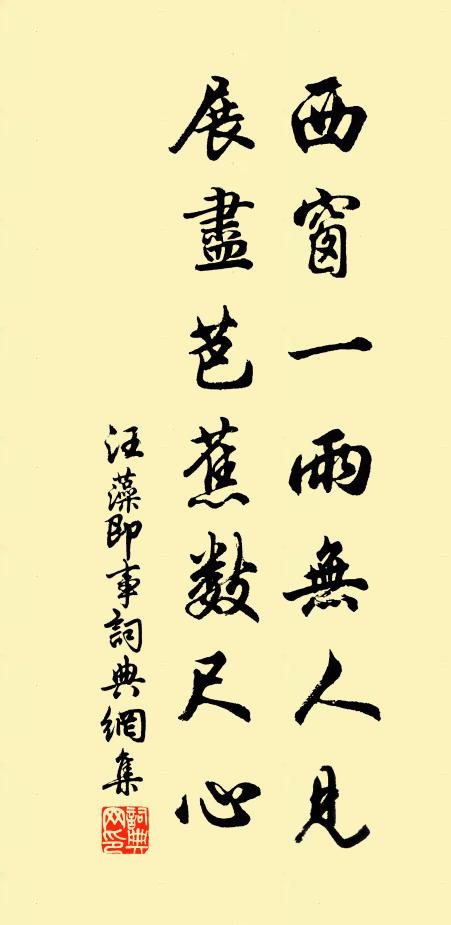 西窗一雨無人見
展盡芭蕉數尺心
汪藻即事詞典網集
詞典网印